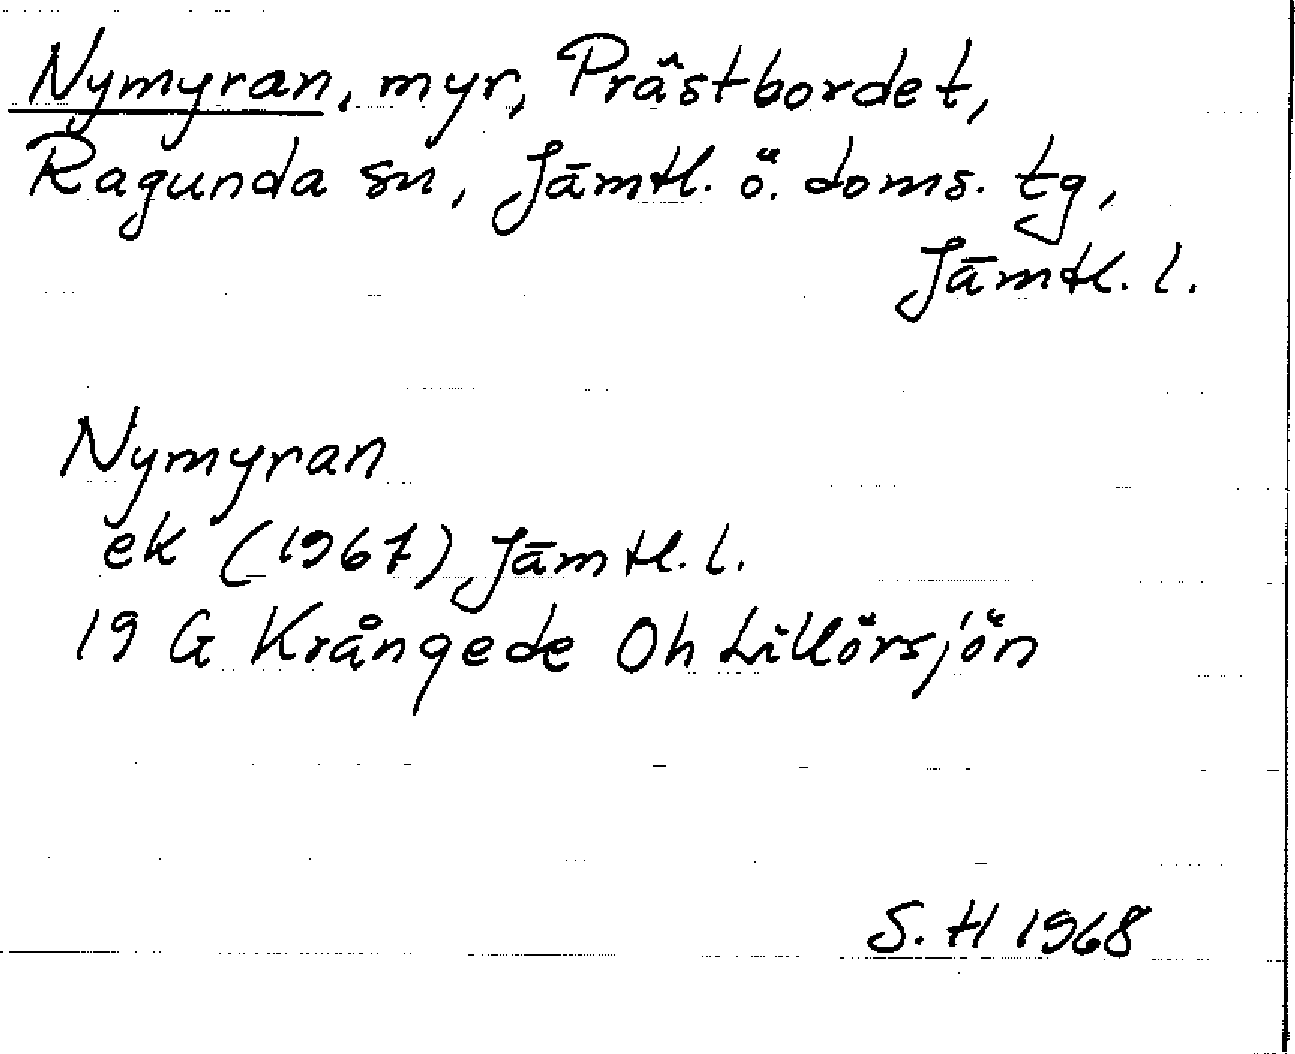 Nymyran, myr, Prästbordet,
Ragunda sn, Jämtl. ö. doms. tg,
Jämtl. l.
Nymyran
ek (1967) Jämtl. l.
19 G Krångede Oh Lillörsjön
S. H 1968